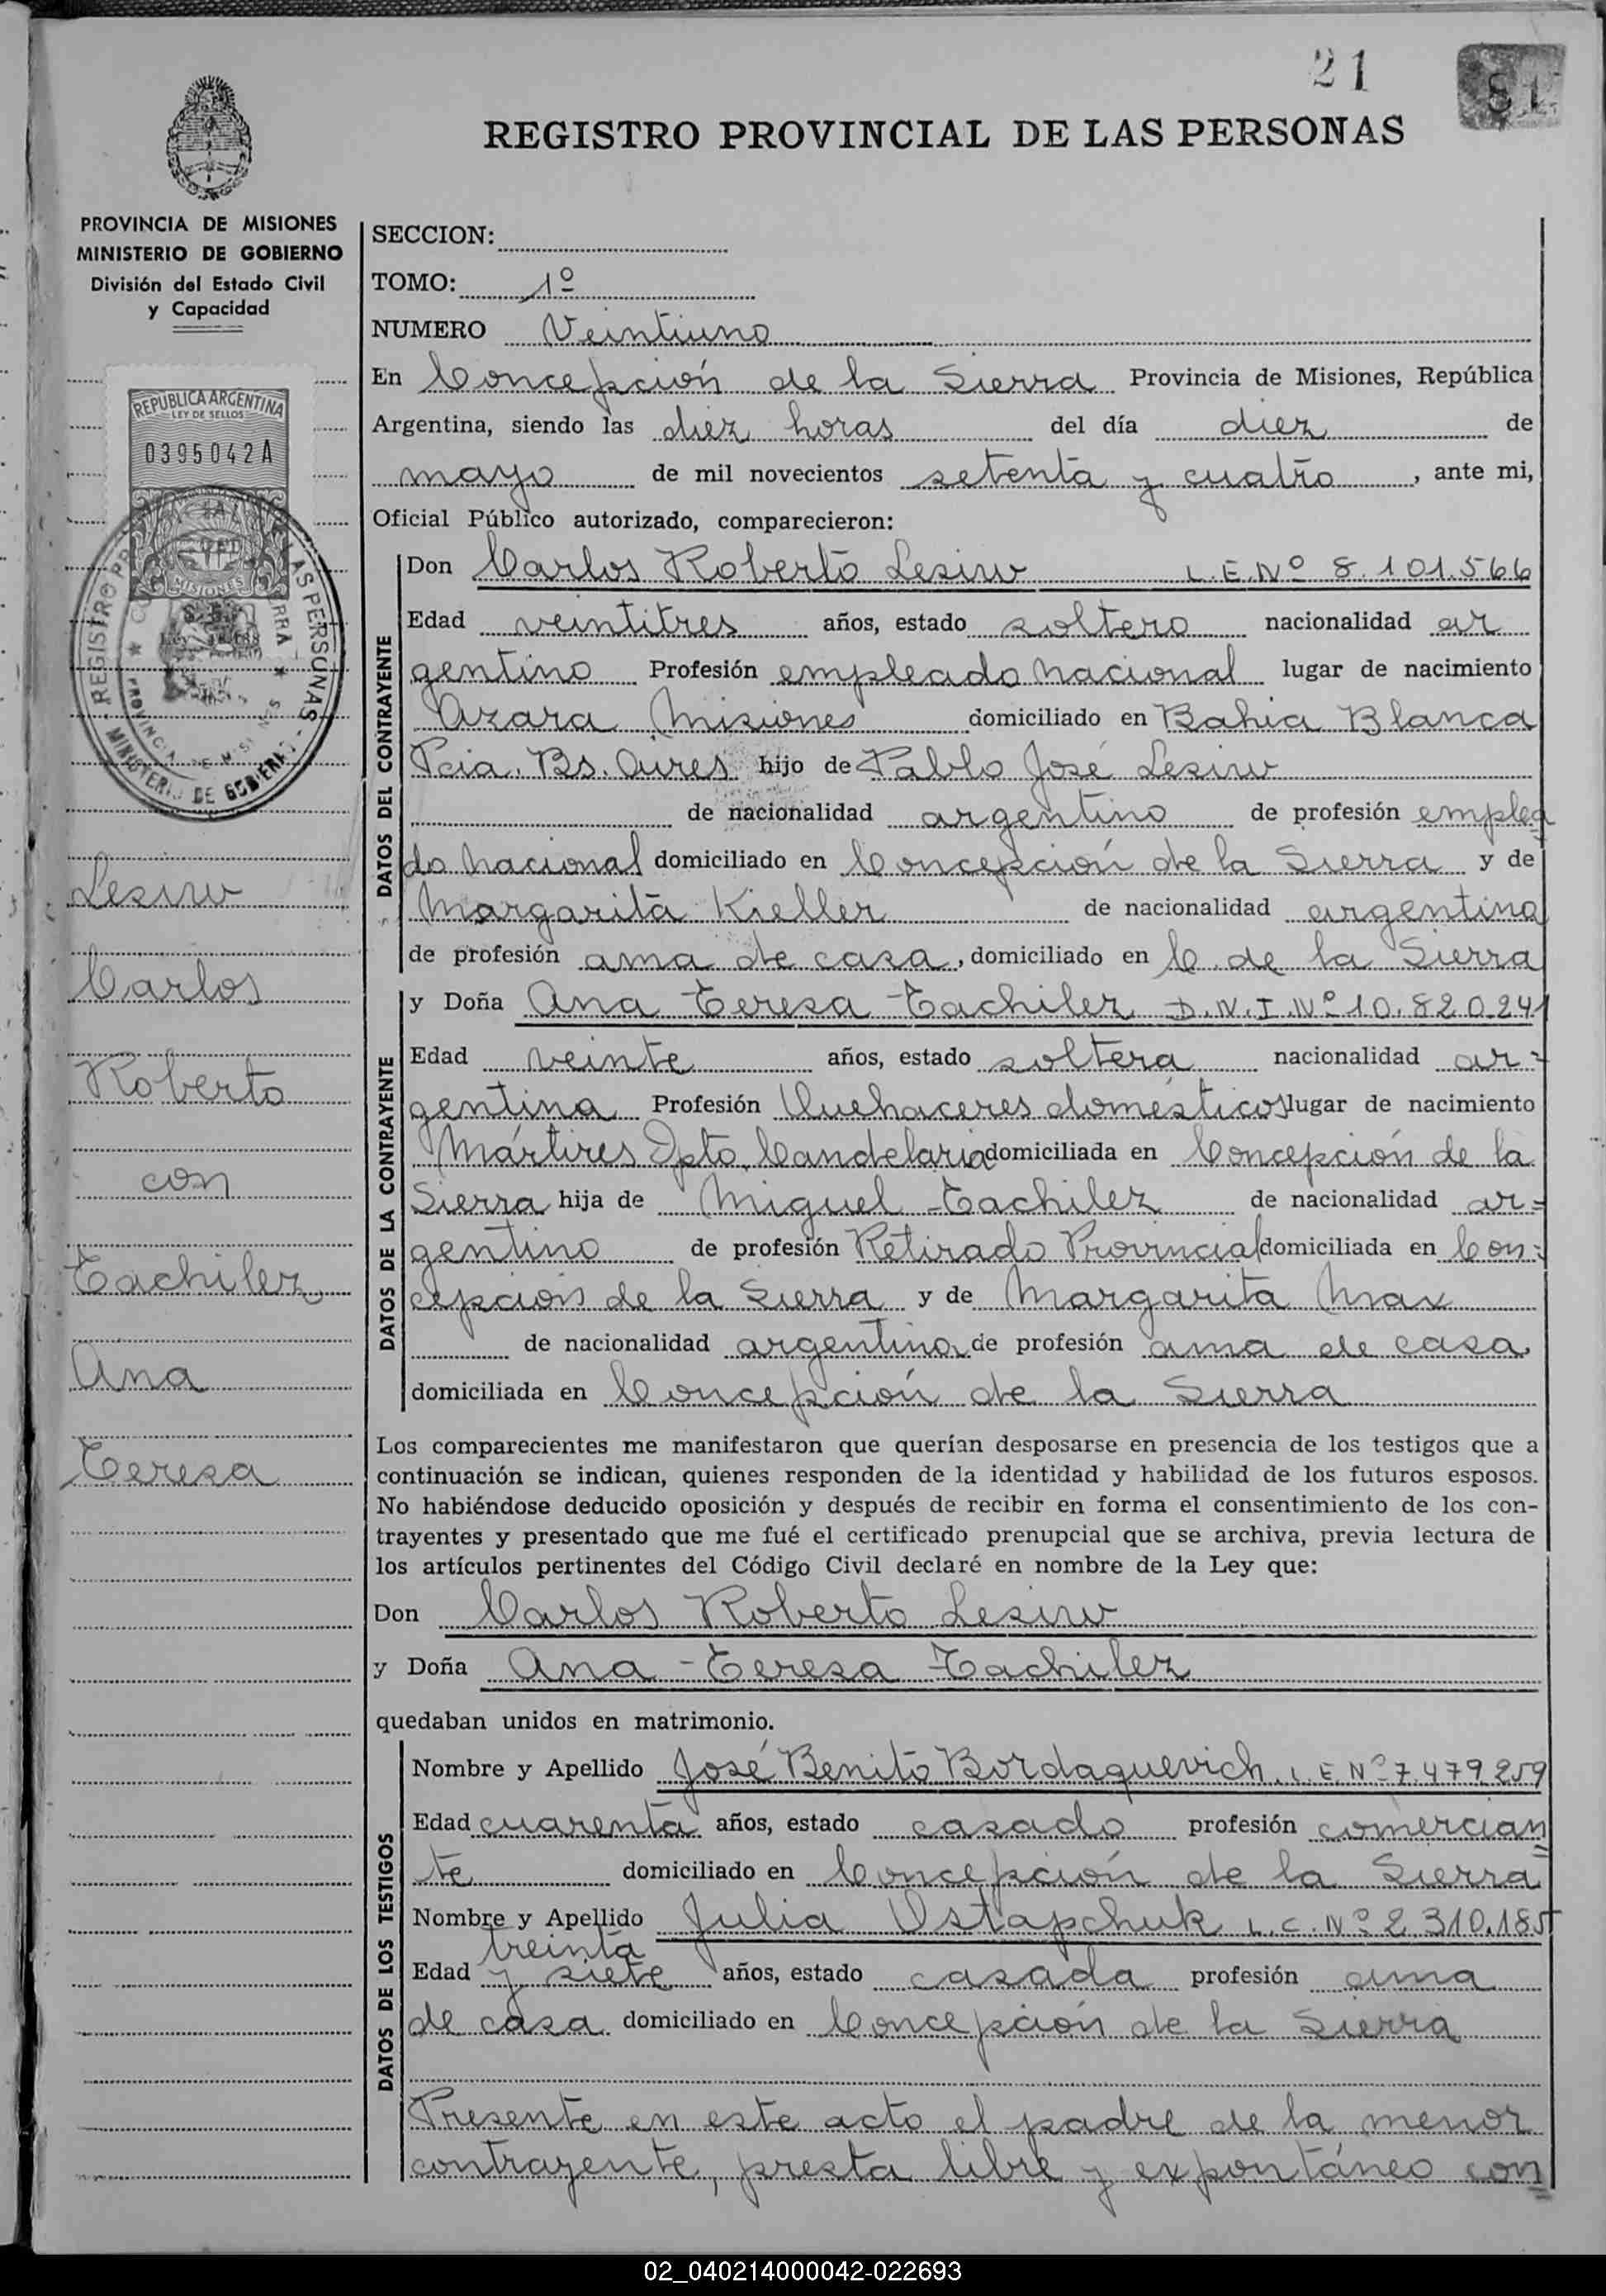 21
81
REGISTRO PROVINCIAL DE LAS PERSONAS
PROVINCIA DE MISIONES
MINISTERIO DE GOBIERNO
División del Estado Civil
y Capacidad
REPUBLICA ARGENTINA
LEY DE SELLOS
0395042A
MISIONES
REGISTRO PR LAS PERSONAS
PROVINCIA DE MISIONES
MINISTERIO DE GOBIERNO
Lesiw
Carlos
Roberto
con
Tachilez
Ana
Teresa
SECCION:
TOMO: 1º
NUMERO Veintiuno
En Concepción de la Sierra Provincia de Misiones, República
Argentina, siendo las diez horas del día diez de
mayo de mil novecientos setenta y cuatro, ante mi,
Oficial Público autorizado, comparecieron:
DATOS DEL CONTRAYENTE
Don Carlos Roberto Lesiw L.E.Nº 8.101.566
Edad veintitres años, estado soltero nacionalidad ar
gentino Profesión empleado nacional lugar de nacimiento
Azara Misiones domiciliado en Bahia Blanca
Pcia. Bs. Aires hijo de Pablo José Lesiw
de nacionalidad argentino de profesión emplea
do nacional domiciliado en Concepción de la Sierra y de
Margarita Kieller de nacionalidad argentina
de profesión ama de casa, domiciliado en C. de la Sierra
DATOS DE LA CONTRAYENTE
y Doña Ana Teresa Tachilez D.N.I.Nº 10.820.241
Edad veinte años, estado soltera nacionalidad ar=
gentina Profesión Quehaceres domésticos lugar de nacimiento
Mártires Dpto. Candelaria domiciliada en Concepción de la
Sierra hija de Miguel Tachilez de nacionalidad ar=
gentino de profesión Retirado Provincial domiciliada en Con=
cepción de la Sierra y de Margarita Max
de nacionalidad argentina de profesión ama de casa
domiciliada en Concepción de la Sierra
Los comparecientes me manifestaron que querían desposarse en presencia de los testigos que a
continuación se indican, quienes responden de la identidad y habilidad de los futuros esposos.
No habiéndose deducido oposición y después de recibir en forma el consentimiento de los con-
trayentes y presentado que me fué el certificado prenupcial que se archiva, previa lectura de
los artículos pertinentes del Código Civil declaré en nombre de la Ley que:
Don Carlos Roberto Lesiw
y Doña Ana Teresa Tachilez
quedaban unidos en matrimonio.
DATOS DE LOS TESTIGOS
Nombre y Apellido José Benito Bordaquevich L.E.Nº 7.479259
Edad cuarenta años, estado casado profesión comercian
te domiciliado en Concepción de la Sierra
Nombre y Apellido Julia Ostapchuk L.C.Nº 2.310.185
treinta
Edad y siete años, estado casada profesión ama
de casa domiciliado en Concepción de la Sierra
Presente en este acto el padre de la menor
contrayente, presta libre y expontáneo con
02_040214000042-022693